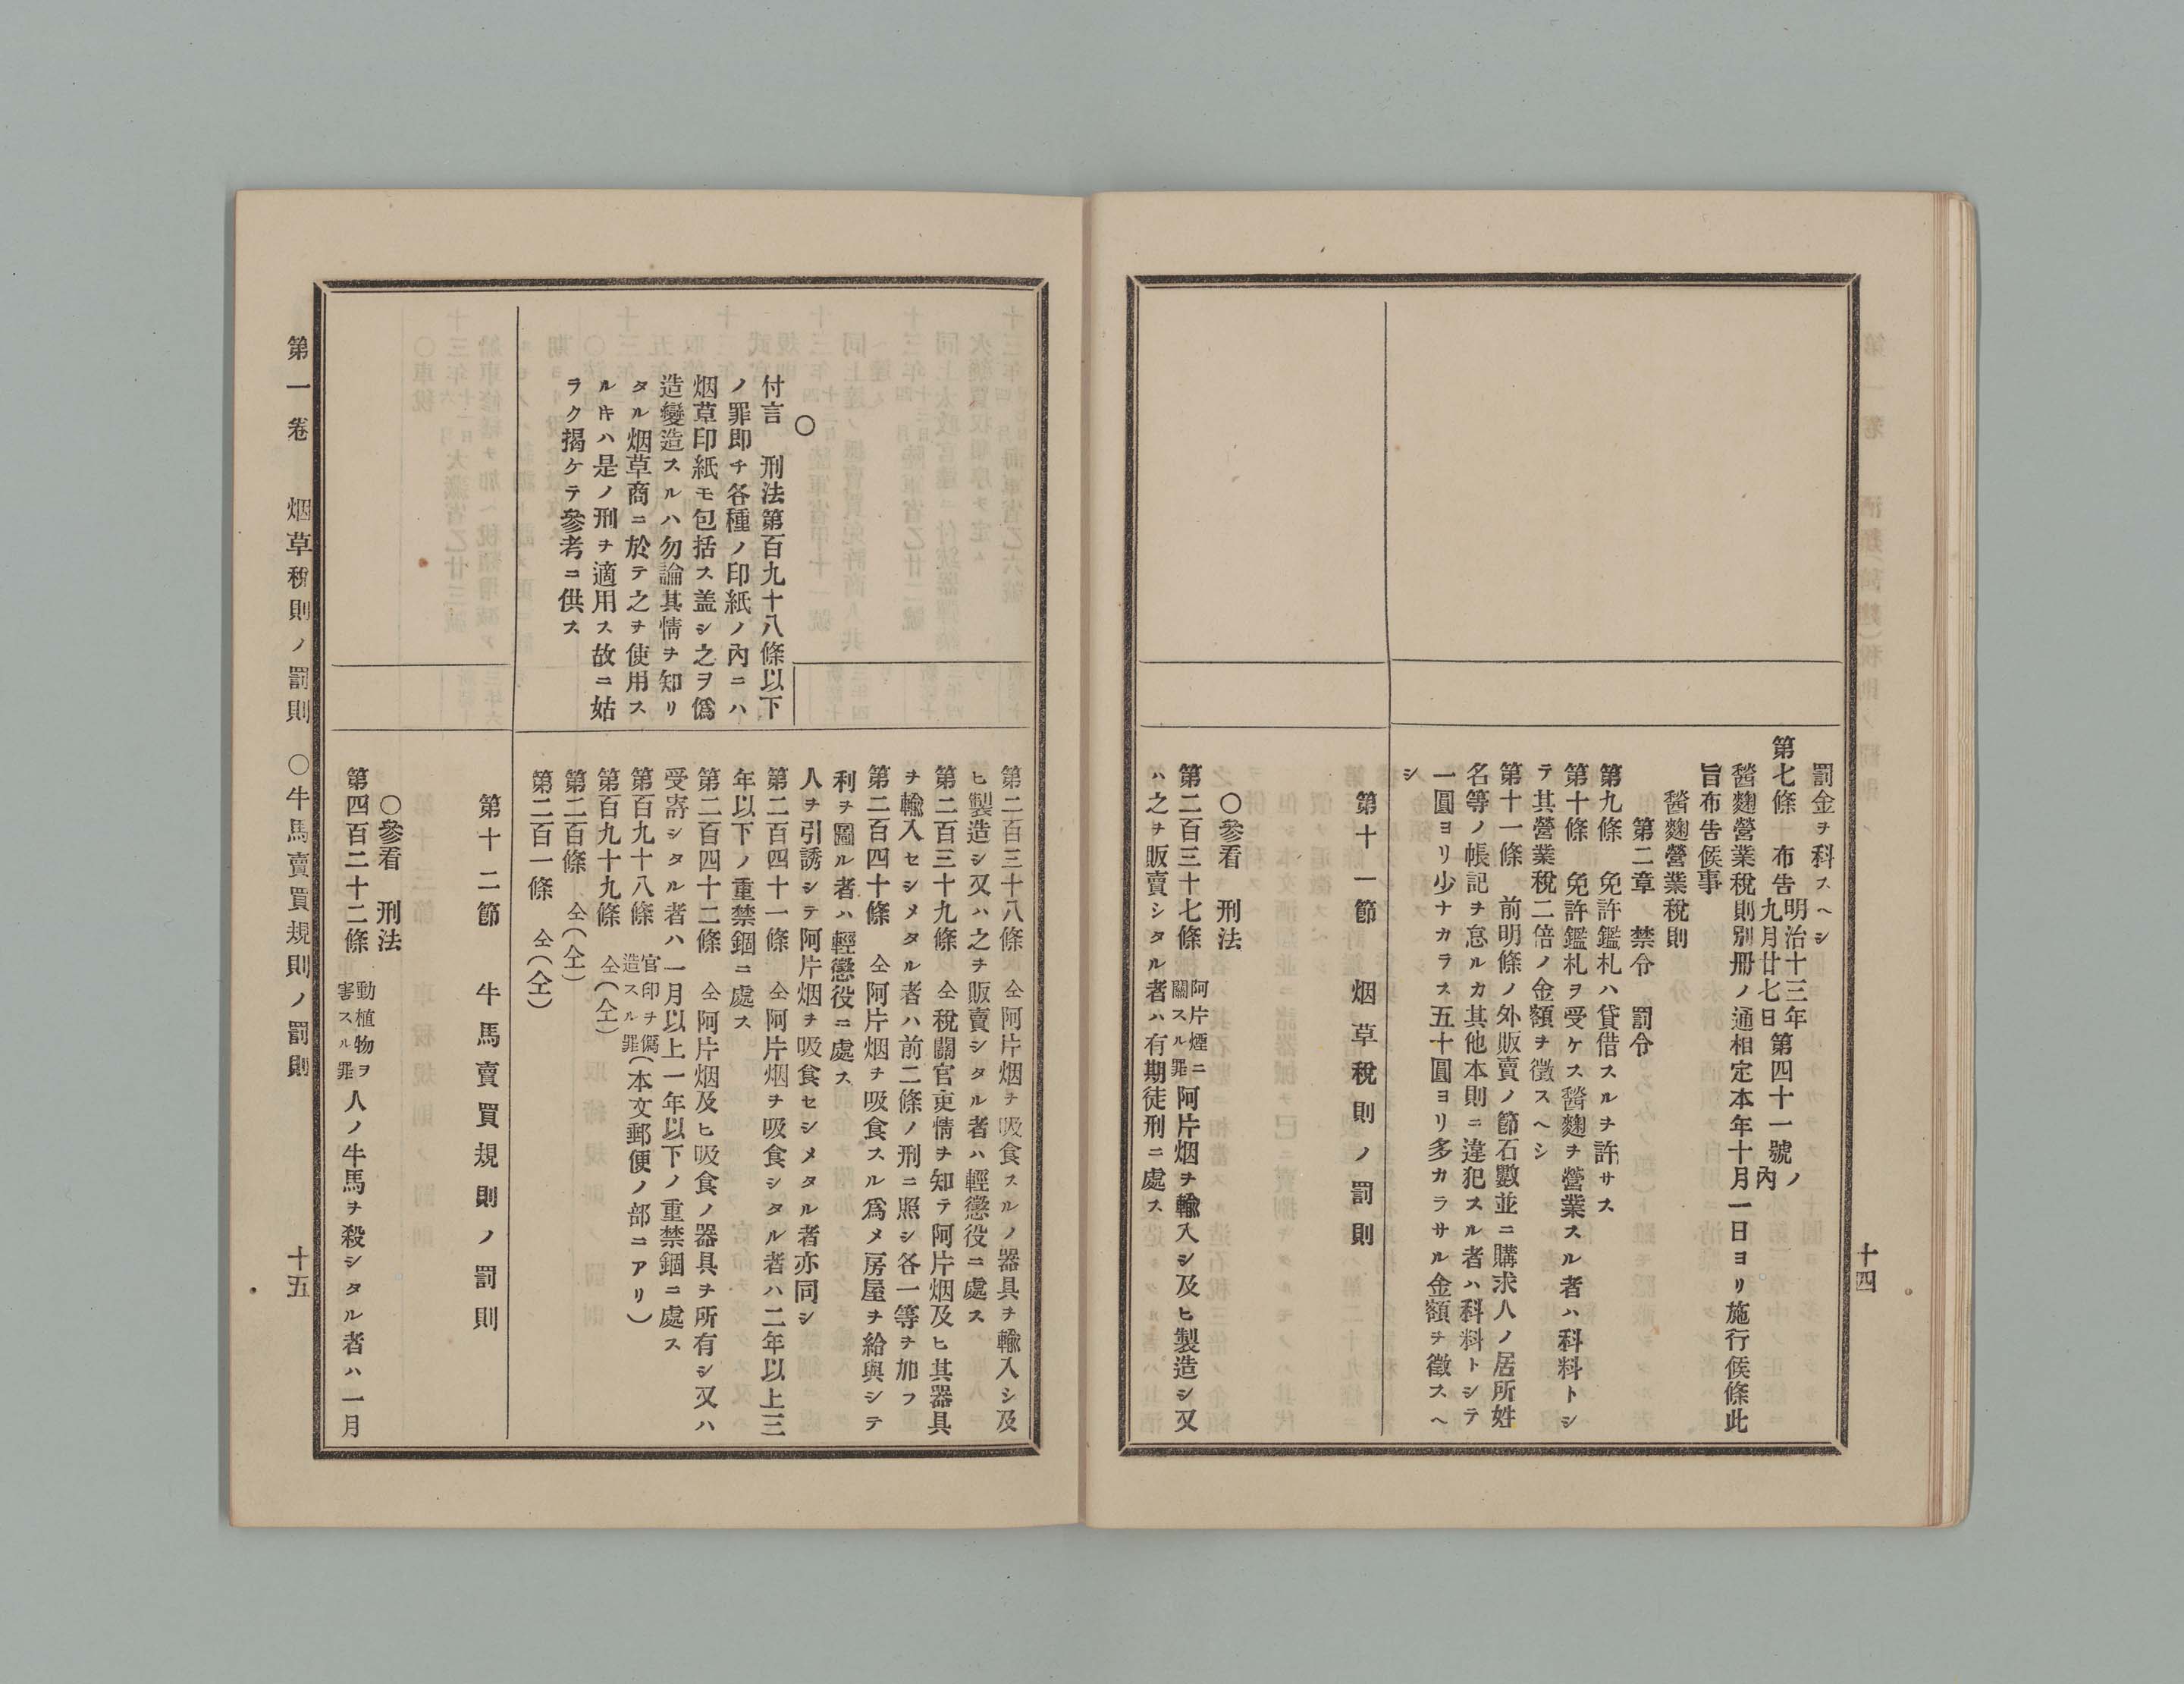 十四
罰金ヲ科スヘシ
第七條　布告明治十三年九月廿七日第四十一號ノ內
醬麴營業稅則別冊ノ通相定本年十月一日ヨリ施行候條此
旨布告候事
醬麴營業稅則
第二章　禁令　罰令
第九條　免許鑑札ハ貸借スルヲ許サス
第十條　免許鑑札ヲ受ケス醬麴ヲ營業スル者ハ科料トシ
テ其營業稅二倍ノ金額ヲ徵スヘシ
第十一條　前明條ノ外販賣ノ節石數並ニ購求人ノ居所姓
名等ノ帳記ヲ怠ルカ其他本則ニ違犯スル者ハ科料トシテ
一圓ヨリ少ナカラス五十圓ヨリ多カラサル金額ヲ徵スヘ
シ
第十一節　烟草稅則ノ罰則
〇參看　刑法
第二百三十七條　阿片煙ニ關スル罪　阿片烟ヲ輸入シ及ヒ製造シ又
ハ之ヲ販賣シタル者ハ有期徒刑ニ處ス
第二百三十八條　仝　阿片烟ヲ吸食スルノ器具ヲ輸入シ及
ヒ製造シ又ハ之ヲ販賣シタル者ハ輕懲役ニ處ス
第二百三十九條　仝　稅關官吏情ヲ知テ阿片烟及ヒ其器具
ヲ輸入セシメタル者ハ前二條ノ刑ニ照シ各一等ヲ加フ
第二百四十條　仝　阿片烟ヲ吸食スル爲メ房屋ヲ給與シテ
利ヲ圖ル者ハ輕懲役ニ處ス
人ヲ引誘シテ阿片烟ヲ吸食セシメタル者亦同シ
第二百四十一條　仝　阿片烟ヲ吸食シタル者ハ二年以上三
年以下ノ重禁錮ニ處ス
第二百四十二條　仝　阿片烟及ヒ吸食ノ器具ヲ所有シ又ハ
受寄シタル者ハ一月以上一年以下ノ重禁錮ニ處ス
第百九十八條　官印ヲ僞造スル罪（本文郵便ノ部ニアリ）
第百九十九條　仝（仝）
第二百條　仝（仝）
第二百一條　仝（仝）
〇
付言　刑法第百九十八條以下
ノ罪即チ各種ノ印紙ノ內ニハ
烟草印紙モ包括ス盖シ之ヲ僞
造變造スルハ勿論其情ヲ知リ
タル烟草商ニ於テ之ヲ使用ス
ルキハ是ノ刑ヲ適用ス故ニ姑
ラク揭ケテ參考ニ供ス
第十二節　牛馬賣買規則ノ罰則
〇參看　刑法
第四百二十二條　動植物ヲ害スル罪　人ノ牛馬ヲ殺シタル者ハ一月
第一卷　烟草稅則ノ罰則　〇牛馬賣買規則ノ罰則　十五